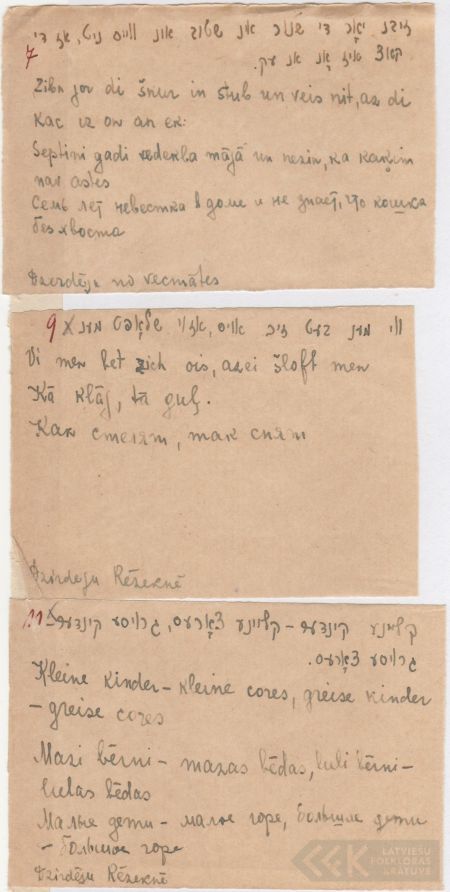 זיבן יאָר די שנור אין שטוב און ווייס ניט, אַז די
7
קאַץ איז אָן אַן עק.
Zibn jor di šnur in štub un veis nit, az di
kac iz on an ek:
Septiņi gadi vedekla mājā un nezin, ka kaķim
nav astes
Семь лет невестка в доме и не знает, что кошка
без хвоста
Dzirdēju no vecmātes
9 X ווי מען בעט זיך אויס, אַזוי שלאָפט מען
Vi men bet zich ois, azei šloft men
Kā klāj, tā guļ.
Как стелят, так спят
Dzirdēju Rēzeknē
11 X קליינע קינדער – קליינע צאָרעס, גרויסע קינדער
גרויסע צאָרעס.
Kleine kinder – kleine cores, greise kinder
– greise cores
Mazi bērni – mazas bēdas, lieli bērni –
lielas bēdas
Малые дети – малое горе, большие дети
– большое горе
Dzirdēju Rēzeknē
LATVIEŠU
FOLKLORAS
KRĀTUVE